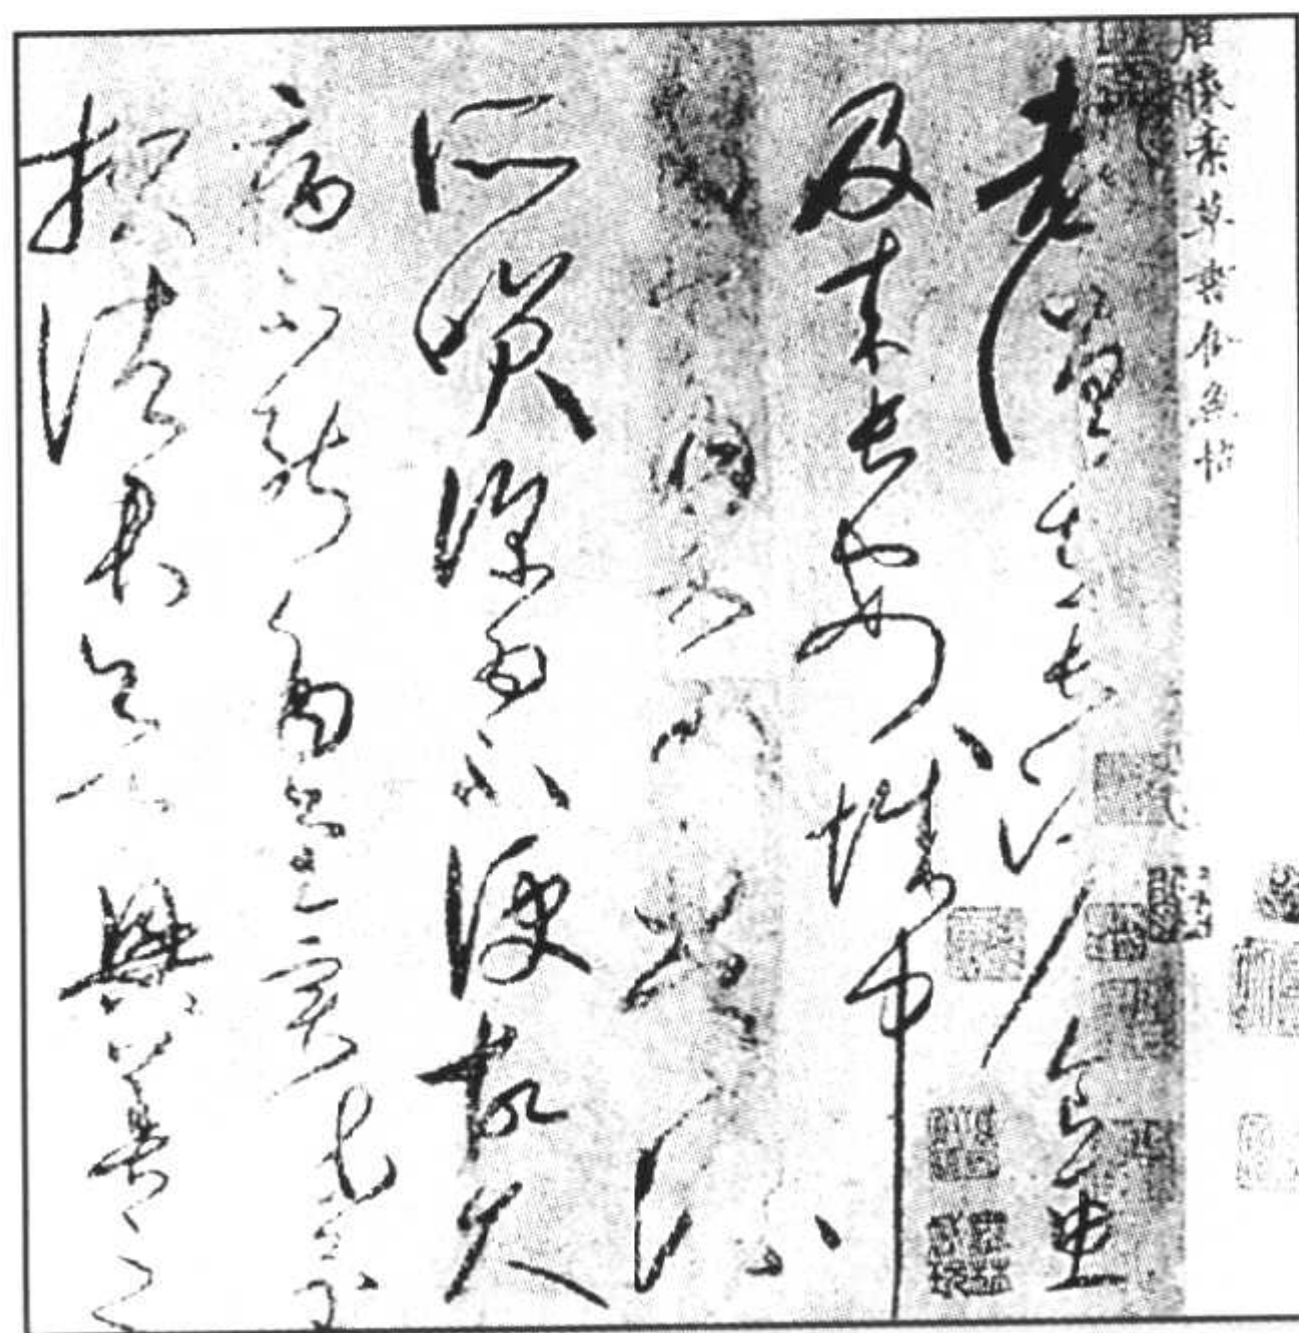 唐懷素草書食魚帖
老僧在長沙食魚
及來長安城中
多食肉又為常流
所笑深為不便故久
病不能多書實疏
報諸君欲興善之